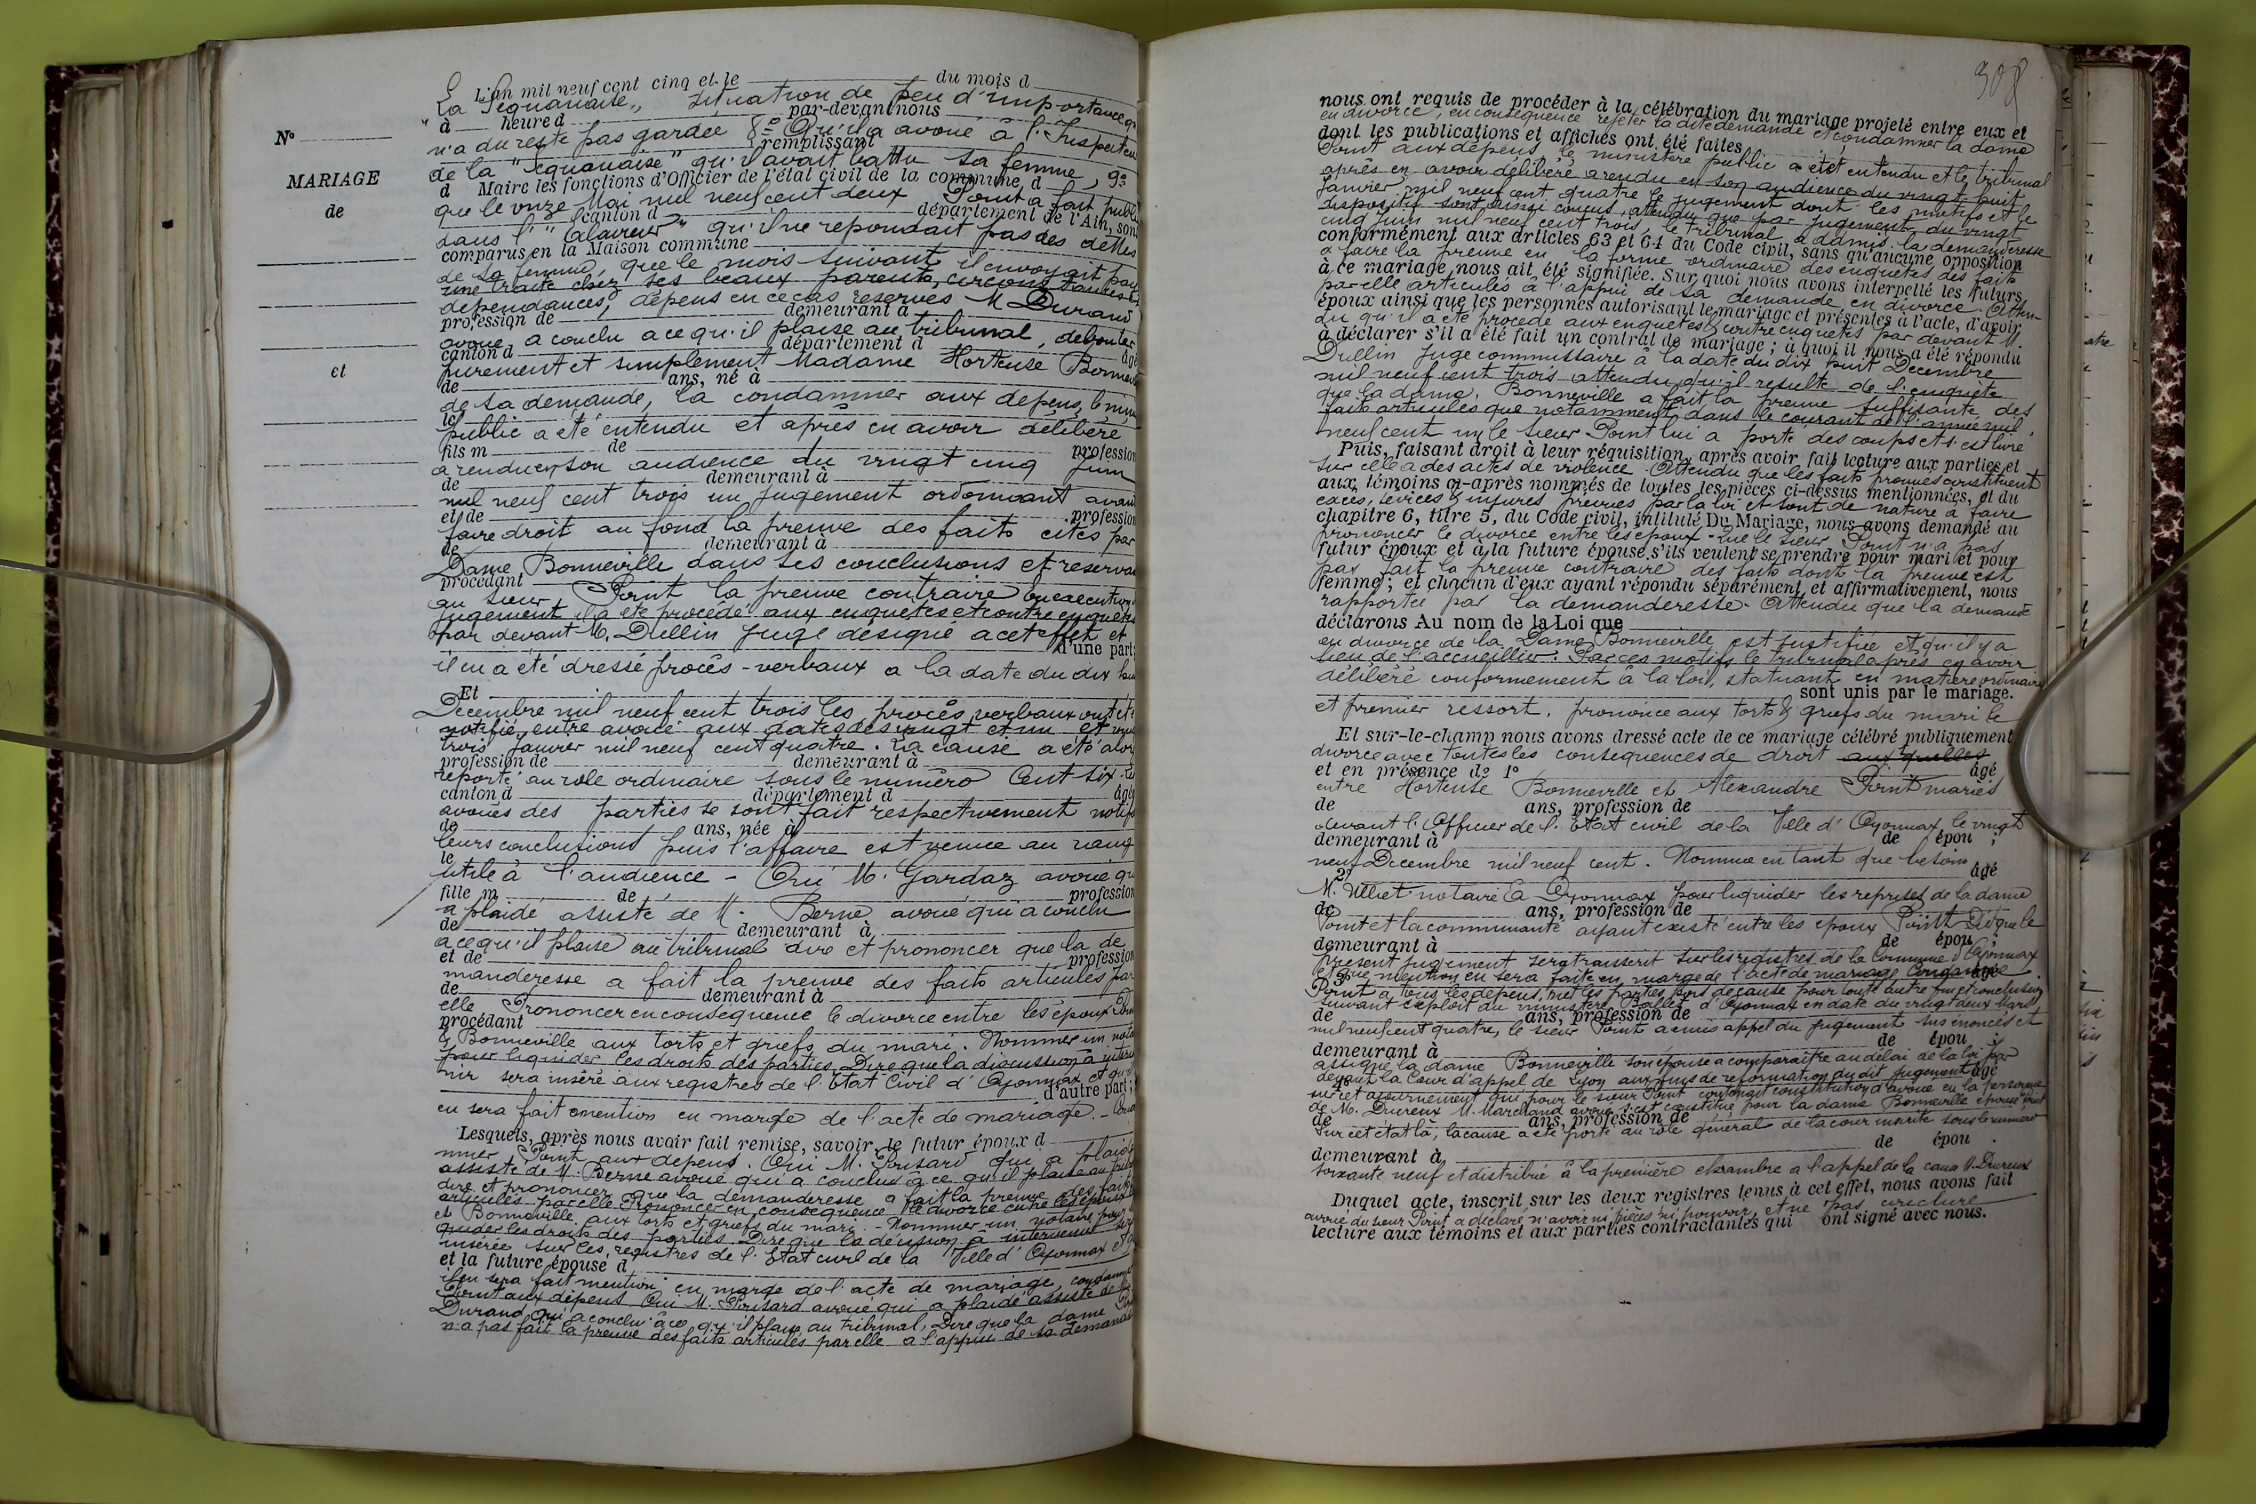 L'an mil neuf cent cinq et le du mois d
La "Séquanaise", situation de peu d'importance qu
à heure d par-devant nous
n'a du reste pas gardée 8° Qu'il a avoué à l'Inspecteur
remplissant
de la "Séquanaise" qu'il avait battu sa femme, 9°
d Maire les fonctions d'Officier de l'état civil de la commune d
que le onze Mai mil neuf cent deux Point a fait publier
canton d département de l'Ain, sont
dans l' qu'il ne répondait pas des dettes
comparus en la Maison commune
de sa femme, que le mois suivant il envoyait pour
une traite chez ses beaux parents, circonstances &
dépendances, dépens en ce cas réservés M Durand
profession de demeurant à
avoué a conclu a ce qu'il plaise au tribunal, débouter
canton d département d âgé
purement et simplement Madame Hortense Bonneville
de ans, né à
de sa demande, la condamner aux dépens, le min
le
public a été entendu et après en avoir délibéré
fils m de profession
a rendu en son audience du vingt cinq Juin
de demeurant à
mil neuf cent trois un jugement ordonnant avant
et de profession
faire droit au fond la preuve des faits cités par
de demeurant à
Dame Bonneville dans ses conclusions et réservant
procédant
au sieur Point la preuve contraire En exécution du
jugement il a été procédé aux enquêtes et contre enquêtes
par devant M. Dullin Juge désigné a cet effet et
d'une part;
il en a été dressé procès-verbaux a la date du dix huit
Et
Décembre mil neuf cent trois les procès verbaux ont été
notifié entre avoué aux dates des vingt et un et vingt
trois Janvier mil neuf cent quatre. La cause a été alors
profession de demeurant à
reporté au role ordinaire sous le numéro Cent six. Les
canton d département d âgé
avoués des parties se sont fait respectivement notifier
de ans, née à
leurs conclusions puis l'affaire est venue au rang
le
utile à l'audience - Oui M. Gardaz avoué qui
fille m de profession
a plaidé assisté de M. Berne avoué qui a conclu
de demeurant à
a ce qu'il plaise au tribunal dire et prononcer que la de
et de profession
manderesse a fait la preuve des faits articulés par
de demeurant à
elle Prononcer en conséquence le divorce entre les époux Point
procédant
& Bonneville aux torts et griefs du mari. Nommer un notaire
pour liquider les droits des parties Dire que la discussion à interve
nir sera inséré aux registres de l'Etat Civil d'Oyonnax et qu'il
d'autre part;
en sera fait mention en marge de l'acte de mariage. - Conda
Lesquels, après nous avoir fait remise, savoir, le futur époux d
mner Point aux dépens. Oui M. Pousard qui a plaidé
assisté de M. Berne avoué qui a conclu à ce qu'il plaise au tribunal
dire et prononcer que la demanderesse a fait la preuve des faits
articulés par elle Prononcer en conséquence le divorce entre les époux
et Bonneville aux torts et griefs du mari. - Nommer un notaire pour li
quider les droits des parties Dire que la décision à intervenir sera
insérée sur les registres de l'Etat civil de la Ville d'Oyonnax et qu'
et la future épouse d
il en sera fait mention en marge de l'acte de mariage, condamner
Point aux dépens Oui M. Pousard avoué qui a plaidé assisté de M.
Durand qui a conclu à ce qu'il plaise au tribunal, Dire que la dame Point
n'a pas fait la preuve des faits articulés par elle a l'appui de sa demande
N°
MARIAGE
de
et
308
nous ont requis de procéder à la célébration du mariage projeté entre eux et
en divorce, en conséquence rejeter la dite demande et condamner la dame
dont les publications et affiches ont été faites
Point aux dépens le ministère public a été entendu et le tribunal
après en avoir délibéré a rendu en son audience du vingt huit
Janvier mil neuf cent quatre le jugement dont les motifs et le
dispositif sont ainsi conçus, attendu que par jugement du vingt
cinq Juin mil neuf cent trois, le tribunal a admis la demanderesse
conformément aux articles 63 et 64 du Code civil, sans qu'aucune opposition
a faire la preuve en la forme ordinaire des enquêtes des faits
à ce mariage nous ait été signifiée. Sur quoi nous avons interpellé les futurs
par elle articulés à l'appui de sa demande en divorce. Atten-
époux ainsi que les personnes autorisant le mariage et présentes à l'acte, d'avoir
du qu'il a été procédé aux enquêtes & contre enquêtes par devant M.
à déclarer s'il a été fait un contrat de mariage; à quoi il nous a été répondu
Dullin Juge commissaire à la date du dix huit Décembre
mil neuf cent trois attendu qu'il résulte de l'enquête
que la dame Bonneville a fait la preuve suffisante des
faits articulés que notamment dans le courant de l'année mil
neuf cent un le sieur Point lui a porté des coups et s'est livré
Puis, faisant droit à leur réquisition, après avoir fait lecture aux parties et
sur elle a des actes de violence Attendu que les faits prouvés constituent
aux témoins ci-après nommés de toutes les pièces ci-dessus mentionnées, et du
excès, sévices & injures prévues par la loi et sont de nature à faire
chapitre 6, titre 5, du Code civil, intitulé Du Mariage, nous avons demandé au
prononcer le divorce entre les époux - Que le sieur Point n'a pas
futur époux et à la future épouse s'ils veulent se prendre pour mari et pour
pas fait la preuve contraire des faits dont la preuve est
femme; et chacun d'eux ayant répondu séparément et affirmativement, nous
rapportée par la demanderesse. Attendu que la demande
déclarons Au nom de la Loi que
en divorce de la Dame Bonneville est justifiée et qu'il y a
lieu de l'accueillir. Par ces motifs le tribunal après en avoir
délibéré conformément à la loi, statuant en matière ordinaire
sont unis par le mariage.
et premier ressort, prononce aux torts & griefs du mari le
Et sur-le-champ nous avons dressé acte de ce mariage célébré publiquement
divorce avec toutes les conséquences de droit aux quelles
et en présence de 1° âgé
entre Hortense Bonneville et Alexandre Point mariés
de ans, profession de
devant l'Officier de l'Etat civil de la Ville d'Oyonnax le vingt
demeurant à de épou ;
neuf Décembre mil neuf cent. Nomme en tant que besoin
2° âgé
M. notaire à Oyonnax pour liquider les reprises de la dame
de ans, profession de
Point et la communauté ayant existé entre les époux Point Dit que le
demeurant à de épou ;
présent jugement sera transcrit sur les registres de la Commune d'Oyonnax
et que mention en sera faite en marge de l'acte de mariage Condamne
3° âgé
Point a tous les dépens, met les parties hors de cause pour toute autre fin et conclusion
suivant exploit du ministère d'Oyonnax en date du vingt deux Mars
de ans, profession de
mil neuf cent quatre, le sieur Point a émis appel du jugement sus énoncés et
demeurant à de épou ;
assigné la dame Bonneville son épouse a comparaître au délai de la loi par
devant la Cour d'appel de Lyon aux fins de réformation du dit jugement
4° âgé
sur cet ajournement que pour le sieur Point contenait constitution d'avoué en la personne
de M. Ducreux M. Marchand avoué s'est constitué pour la dame Bonneville épouse Point
de ans, profession de
Sur cet état là, la cause a été porté au rôle général de la cour inscrite sous le numéro
demeurant à de épou .
soixante neuf et distribué à la première chambre a l'appel de la cause M. Ducreux
Duquel acte, inscrit sur les deux registres tenus à cet effet, nous avons fait
avoué du sieur Point a déclaré n'avoir ni pièces ni pouvoir et ne pas conclure
lecture aux témoins et aux parties contractantes qui ont signé avec nous.